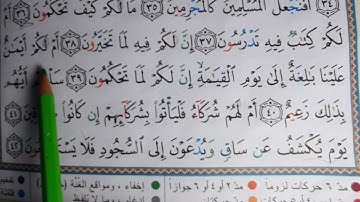 ٣٤ أَفَنَجْعَلُ ٱلْمُسْلِمِينَ كَٱلْمُجْرِمِينَ ٣٥ مَا لَكُمْ كَيْفَ تَحْكُمُونَ ٣٦ أَمْ
لَكُمْ كِتَٰبٌ فِيهِ تَدْرُسُونَ ٣٧ إِنَّ لَكُمْ فِيهِ لَمَا تَخَيَّرُونَ ٣٨ أَمْ لَكُمْ أَيْمَٰنٌ
عَلَيْنَا بَٰلِغَةٌ إِلَىٰ يَوْمِ ٱلْقِيَٰمَةِ إِنَّ لَكُمْ لَمَا تَحْكُمُونَ ٣٩ سَلْهُمْ أَيُّهُم
بِذَٰلِكَ زَعِيمٌ ٤٠ أَمْ لَهُمْ شُرَكَآءُ فَلْيَأْتُوا۟ بِشُرَكَآئِهِمْ إِن كَانُوا۟ صَٰدِقِينَ ٤١
يَوْمَ يُكْشَفُ عَن سَاقٍ وَيُدْعَوْنَ إِلَى ٱلسُّجُودِ فَلَا يَسْتَطِيعُونَ ٤٢
مدّ ٦ حركات لزوماً مدّ ٢ أو ٤ أو ٦ جوازاً إخفاء، ومواقع الغنّة